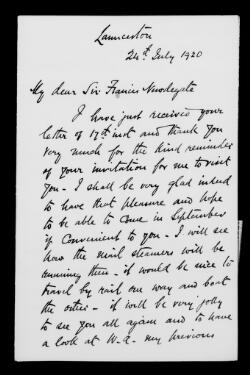 Launceston
24th July 1920
My dear Sir Francis Newdegate
I have just received your
letter of 17th inst and thank you
very much for the kind reminder
of your invitation for me to visit
you - I shall be very glad indeed
to have that pleasure and hope
to be able to come in September
if convenient to you - I will see
how the mail steamers will be
running then - it would be nice to
travel by rail one way and boat
the other - it will be very jolly
to see you all again and to have
a look at W.A. my previous